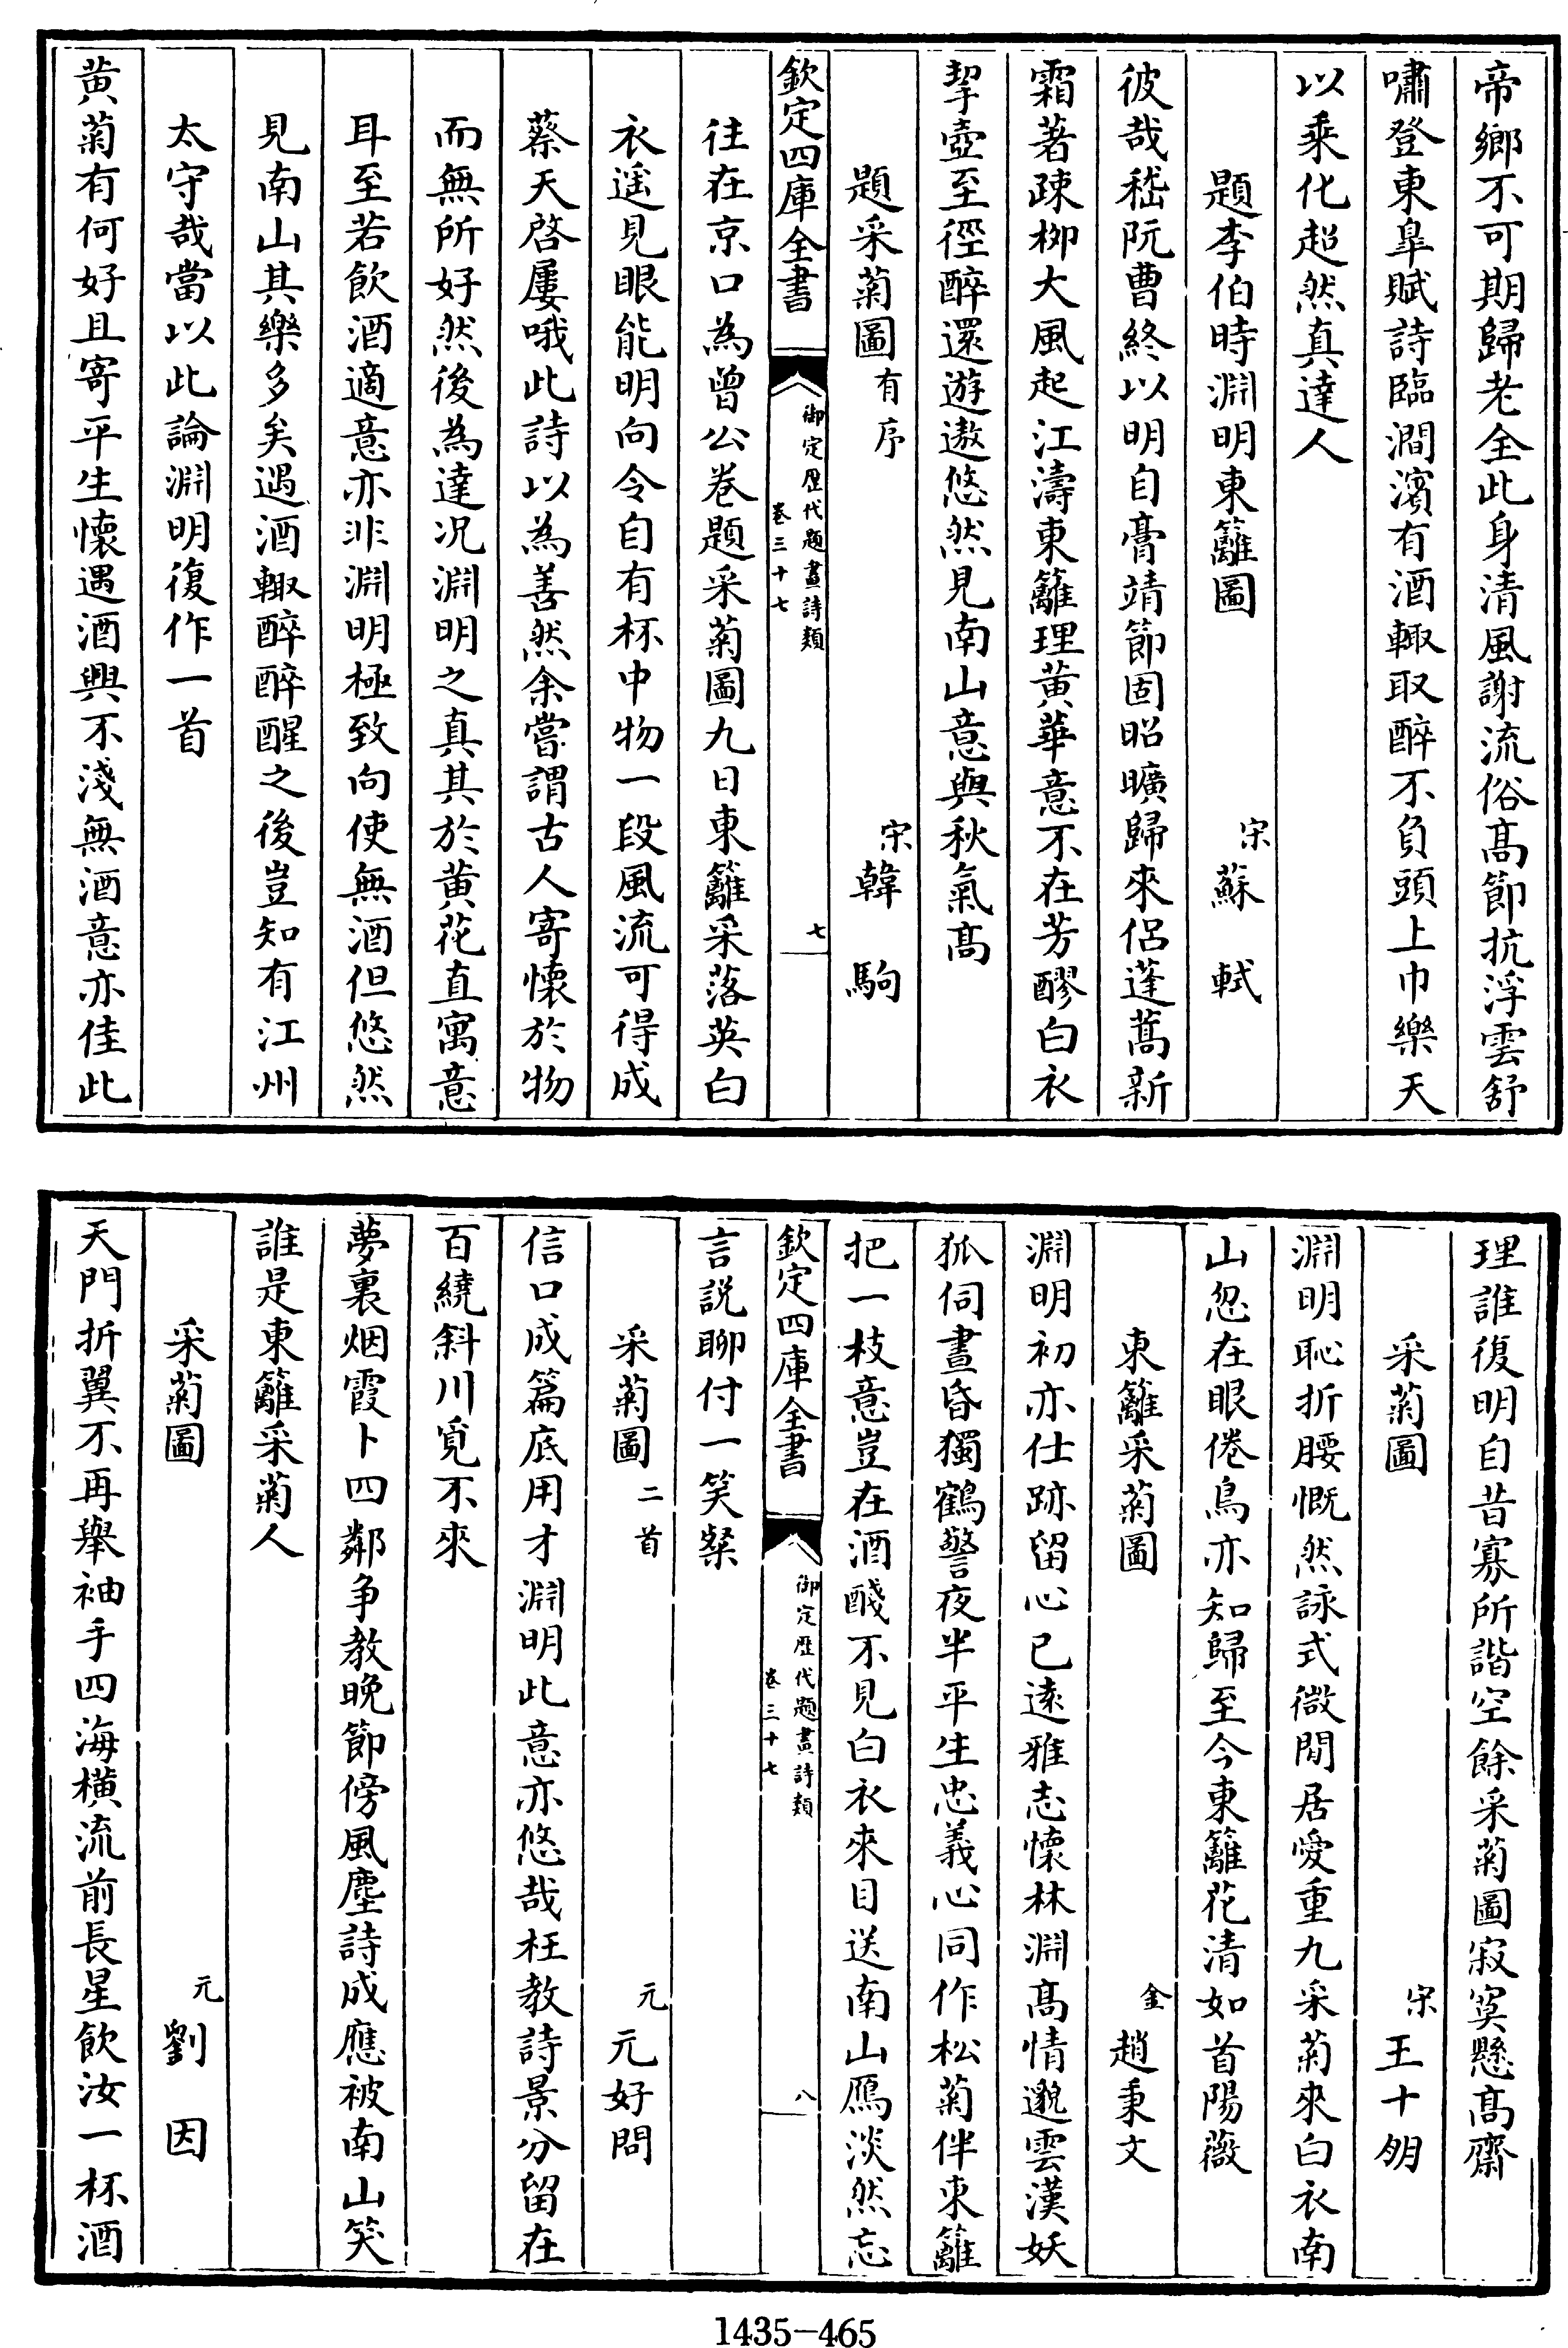 帝鄉不可期歸老全此身清風謝流俗髙節抗浮雲舒
嘯登東臯賦詩臨澗濱有酒輙取醉不負頭上巾樂天
以乘化超然真達人
題李伯時淵明東籬圖 宋蘇軾
彼哉嵇阮曹終以明自膏靖節固昭曠歸來侣蓬蒿新
霜著疎栁大風起江濤東籬理黄華意不在芳醪白衣
挈壺至徑醉還遊遨悠然見南山意與秋氣髙
題采菊圖有序 宋韓駒
欽定四庫全書 御定歷代題畫詩類 卷三十七 七
往在京口為曾公卷題采菊圖九日東籬采落英白
衣遥見眼能明向令自有杯中物一段風流可得成
蔡天啓屢哦此詩以為善然余嘗謂古人寄懷於物
而無所好然後為達况淵明之真其於黄花直寓意
耳至若飲酒適意亦非淵明極致向使無酒但悠然
見南山其樂多矣遇酒輙醉醉醒之後豈知有江州
太守哉當以此論淵明復作一首
黄菊有何好且寄平生懷遇酒興不淺無酒意亦佳此
理誰復明自昔寡所諧空餘采菊圖寂寞懸髙齋
采菊圖 宋王十朋
淵明恥折腰慨然詠式微閒居愛重九采菊來白衣南
山忽在眼倦鳥亦知歸至今東籬花清如首陽薇
東籬采菊圖 金趙秉文
淵明初亦仕跡留心已遠雅志懷林淵髙情邈雲漢妖
狐伺晝昏獨鶴警夜半平生忠義心同作松菊伴東籬
把一枝意豈在酒醆不見白衣來目送南山鴈淡然忘
欽定四庫全書 御定歷代題畫詩類 卷三十七 八
言説聊付一笑粲
采菊圖二首 元元好問
信口成篇底用才淵明此意亦悠哉枉教詩景分留在
百繞斜川覓不來
夢裏烟霞卜四鄰争教晚節傍風塵詩成應被南山笑
誰是東籬采菊人
采菊圖 元劉因
天門折翼不再舉袖手四海横流前長星飲汝一杯酒
1435-465